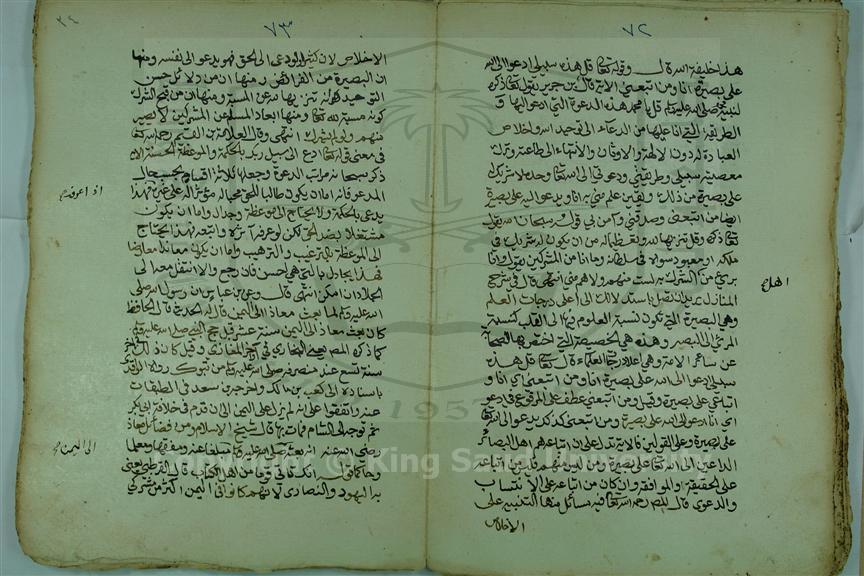 ٧٢
هذا خليفة الله قال وقوله تعالى قل هذه سبيلي ادعوا الى الله
على بصيرة انا ومن اتبعني الاية قال بن جرير يقول تعالى ذكره
لنبيه محمد صلى الله عليه وسلم قل يا محمد هذه الدعوة التي ادعوا اليها و
الطريقة التي انا عليها من الدعاء الى توحيد الله واخلاص
العبادة له دون الالهة والاوثان والانتهاء الى طاعته وترك
معصيته سبيلي وطريقتي ودعوتي الى الله تعالى وحده لا شريك له
على بصيرة من ذلك ويقين علم مني به انا ويدعو اليه على بصيرة
ايضا من اتبعني وصدقني وآمن بي قوله وسبحان الله يقول
تعالى ذكره وقل تنزيها لله وتعظيما له من ان يكون له شريك في
ملكه او معبود سواه في سلطانه وما انا من المشركين يقول وانا
بريء من اهل الشرك به لست منهم ولا هم مني انتهى قال في شرح
المنازل يريد ان تصل باستدلالك الى اعلى درجات العلم
وهي البصيرة التي تكون نسبة العلوم فيها الى القلب كنسبة
المرئي الى البصر وهذه هي الخصيصة التي اختص بها الصحابة
عن سائر الامة وهي اعلا درجات العلماء قال تعالى قل هذه
سبيلي ادعوا الى الله على بصيرة انا ومن اتبعني اي انا و
اتباعي على بصيرة وقيل ومن اتبعني عطف على المرفوع في ادعو
اي انا ادعو الى الله على بصيرة ومن اتبعني كذلك يدعو الى الله تعالى
على بصيرة وعلى القولين فالاية تدل على ان اتباعه هم اهل البصائر
الداعين الى الله تعالى على بصيرة ومن ليس منهم فليس من اتباعه
على الحقيقة والموافقة وان كان من اتباعه على الانتساب
والدعوى قال المص رحمه الله تعالى فيه مسائل منها التنبيه على
الاخلاص
اهل صح
٧٣
٣٤
الاخلاص لان كثيرا لو دعى الى الحق فهو يدعو الى نفسه ومنها
ان البصيرة من الفرائض ومنها ان من دلائل حسن
التوحيد كونه تنزيها لله عن المسبة ومنها ان من قبح الشرك
كونه مسبة لله تعالى ومنها ابعاد المسلم عن المشركين لا يصير
منهم ولو لم يشرك انتهى وقال العلامة بن القيم رحمه الله تعالى
في معنى قوله تعالى ادع الى سبيل ربك بالحكمة والموعظة الحسنة الاية
ذكر سبحانه مراتب الدعوة وجعلها ثلاثة اقسام بحسب حال
المدعو فانه اما ان يكون طالبا للحق محبا له مؤثرا له على غيره فهذا
يدعى بالحكمة ولا يحتاج الى موعظة وجدال واما ان يكون
مشتغلا بضد الحق لكن لو عرفه آثره واتبعه فهذا يحتاج
الى الموعظة بالترغيب والترهيب واما ان يكون معاندا معارضا
فهذا يجادل بالتي هي احسن فان رجع والا انتقل معه الى
الجلاد ان امكن انتهى قال وعن بن عباس ان رسول الله صلى
الله عليه وسلم لما بعث معاذا الى اليمن قال له الحديث قال الحافظ
كان بعث معاذ الى اليمن سنة عشر قبل حج النبي صلى الله عليه وسلم
كما ذكره المص يعني البخاري في آخر المغازي وقيل كان ذلك في آخر
سنة تسع عند منصرفه صلى الله عليه وسلم من تبوك رواه الواقدي
باسناده الى كعب بن مالك واخرجه بن سعد في الطبقات
عنه واتفقوا على انه لم يزل على اليمن الى ان قدم في خلافة ابي بكر
ثم توجه الى الشام فمات بها قال شيخ الاسلام ومن فضائل معاذ
رضي الله عنه انه بعثه صلى الله عليه وسلم مبلغا عنه ومفقها ومعلما
وحاكما قوله انك تأتي قوما من اهل الكتاب قال القرطبي يعني
به اليهود والنصارى لانهم كانوا في اليمن اكثر من مشركي
اذا عرفه صح
الى اليمن صح
Copyright © King Saud University
1957